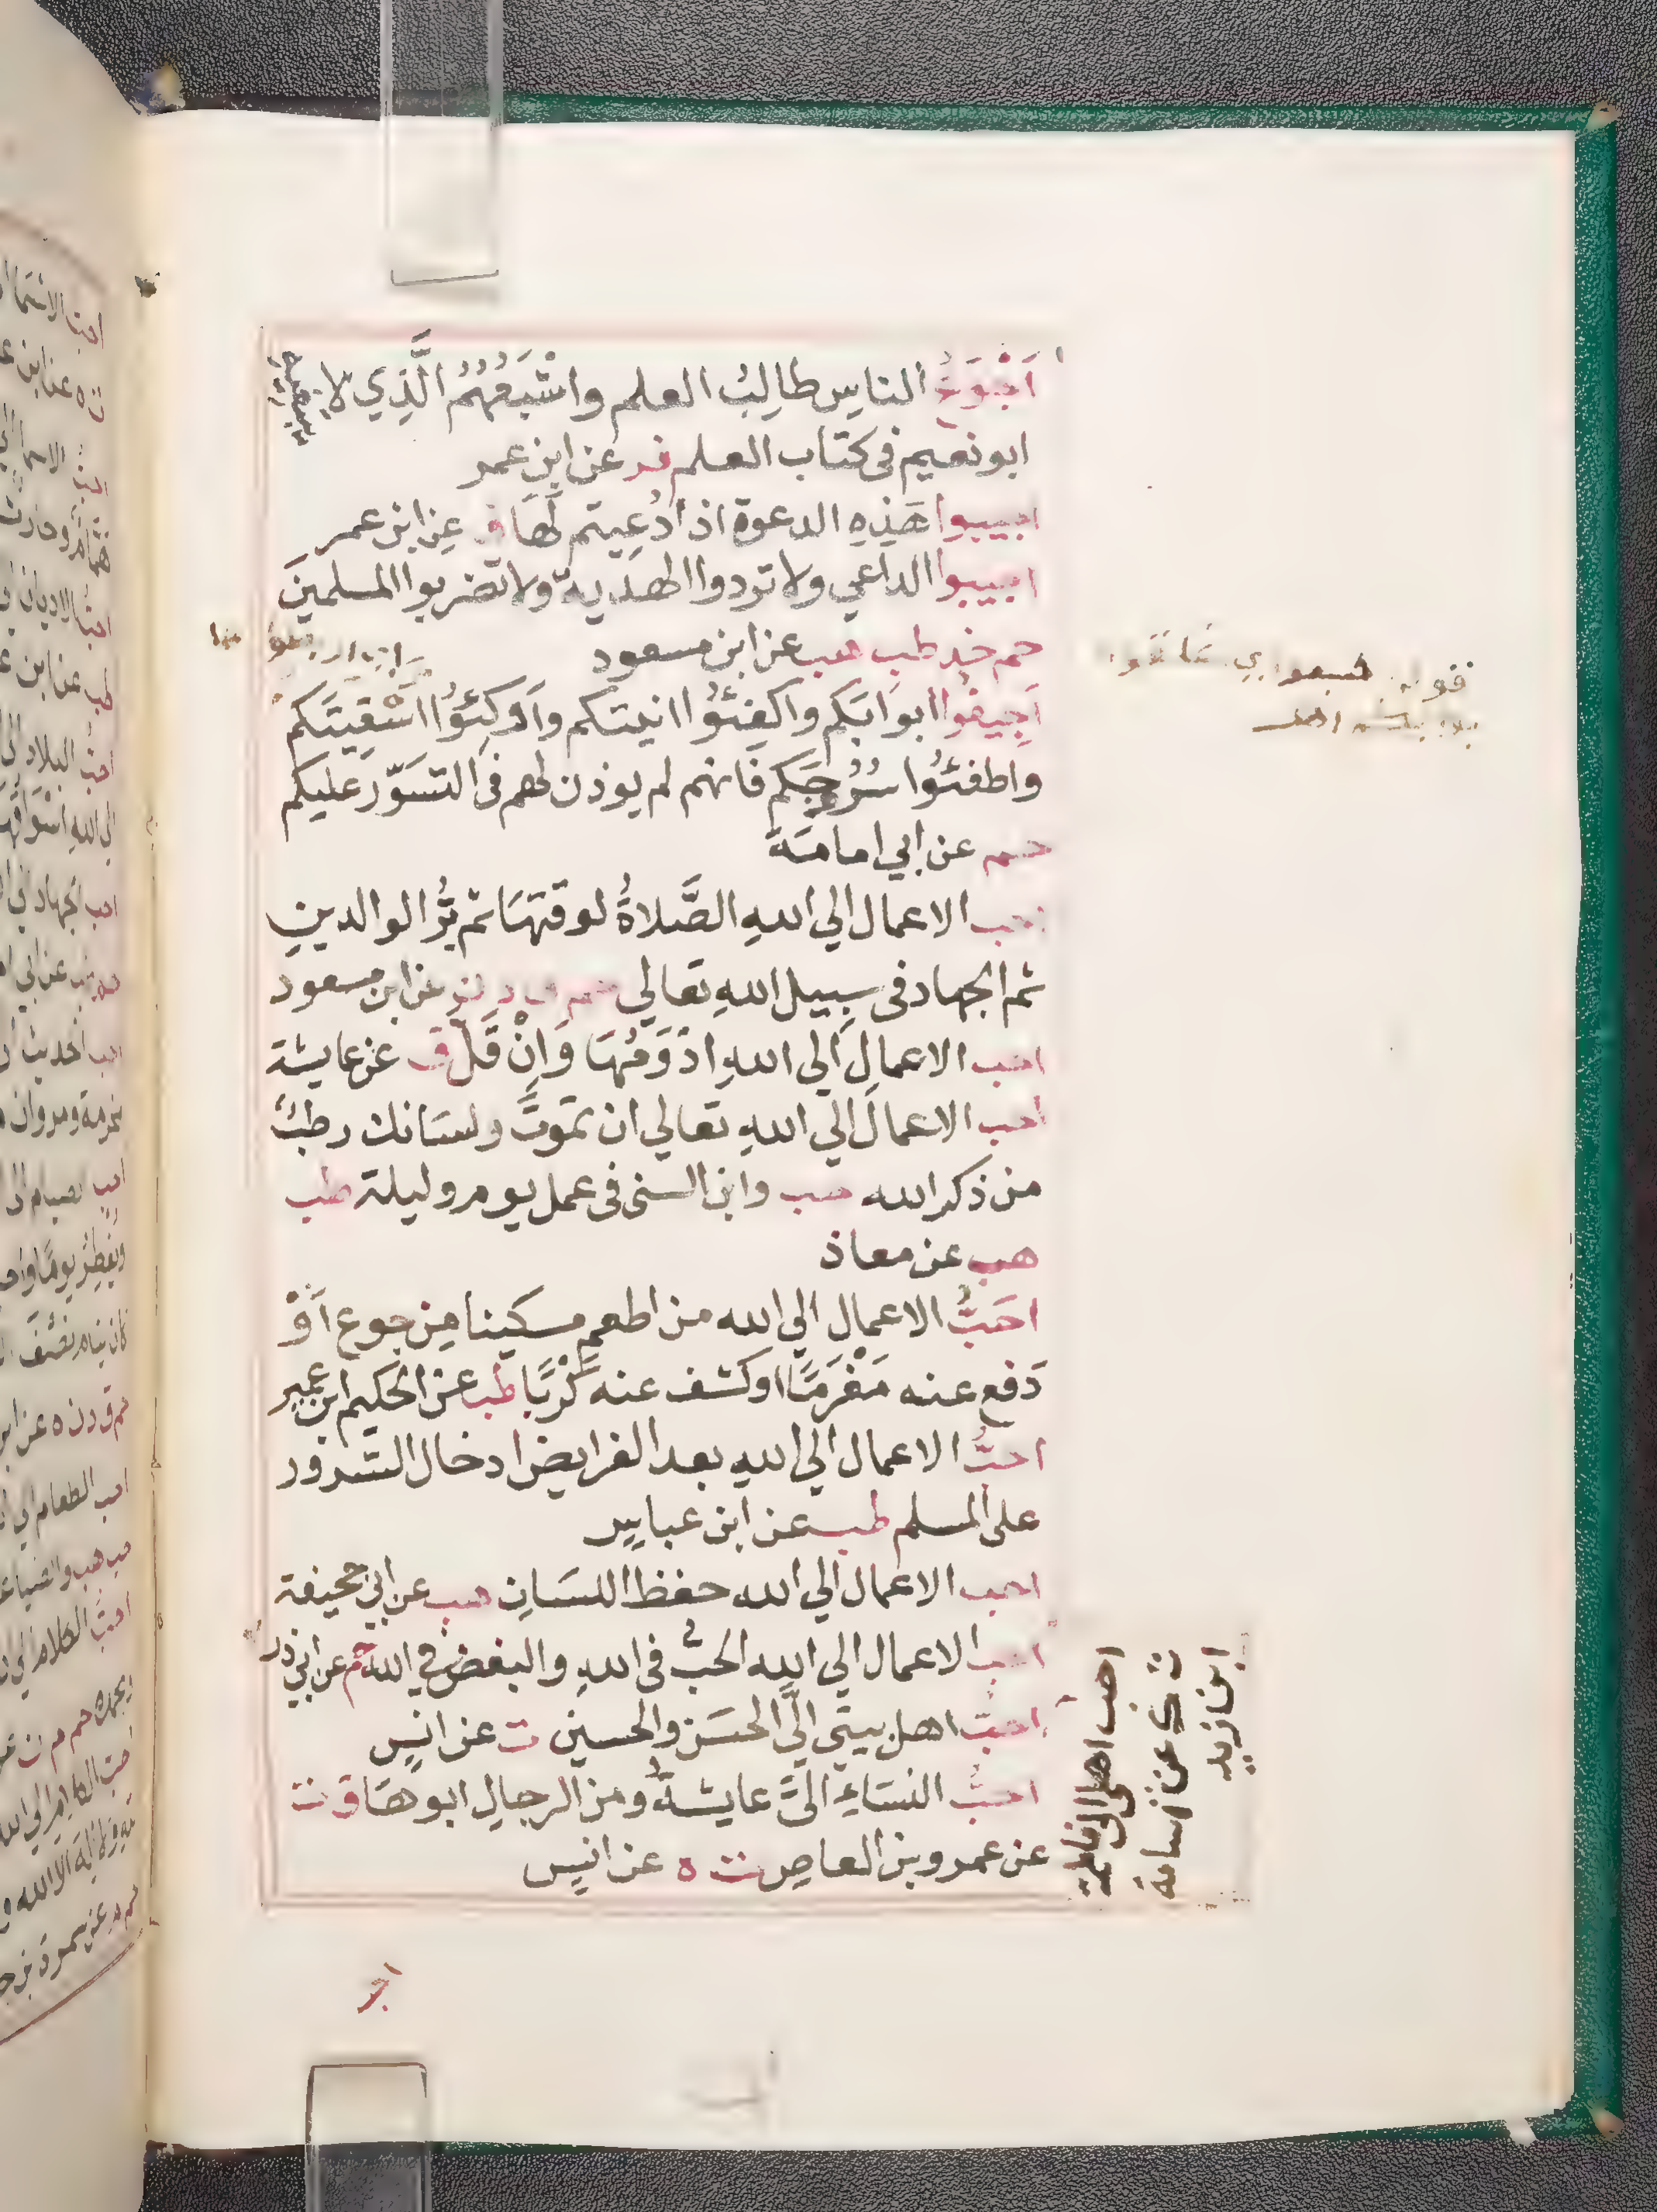 اَجْوَعُ الناسِ طالِبُ العلم واشْبَعُهُمُ الَّذِي لا يبتغيه
ابو نعيم فى كتاب العلم فر عن ابن عمر
اجيبوا هَذِهِ الدعوة اذا دُعِيتم لَهَا ق عن ابن عمر
اجيبوا الداعي ولا تردوا الهدية ولا تضربوا المسلمينَ
حم خد طب هب عن ابن مسعود
اَجِيفُوا ابوابَكم واكفِئوُا انيتكم واَوكِئوُا اسْقِيَتَكم
واطفئوُا سُرُجَكم فانهم لم يوذن لهم فى التسَوّر عليكم
حم عن ابي امامَة
احب الاعمال الي اللهِ الصَّلاةُ لوقتهَا ثم بِرُّ الوالدينِ
ثم الجهاد فى سبِيل اللهِ تعالي حم ق د ن عن ابن مسعود
احب الاعمالِ الي اللهِ ادْوَمُهَا وَاِنْ قَلَّ ق عن عايشة
احب الاعمال الي اللهِ تعالي ان تموتَ ولسَانك رطبٌ
من ذكر الله حب وابن السنى فى عمل يوم وليلة طب
هب عن معاذ
احَبُّ الاعمال الي الله من اطعم مسكينا مِن جوع اَوْ
دَفع عنه مَغْرَمًا او كشف عنه كَرْبًا طب عن الحكيم ابن عمير
احبُّ الاعمال الي اللهِ بعد الفرايض ادخال السّرور
على المسلم طب عن ابن عباسٍ
احب الاعمال الي الله حفظ اللسَانِ هب عن ابي جحيفة
احب الاعمال الي الله الحُبّ فى اللهِ والبغض في الله حم عن ابي ذر
احبّ اهل بيتي الَيَّ الحسَن والحسين ت عن انسٍ
احبُّ النسَاءِ الىَّ عايشةُ ومن الرجالِ ابوهَا ق ت
عن عمرو بن العاصِ ت ه عن انس
احب اهلي الي فاطمة
ت ك عن اسامة
ابن زيد